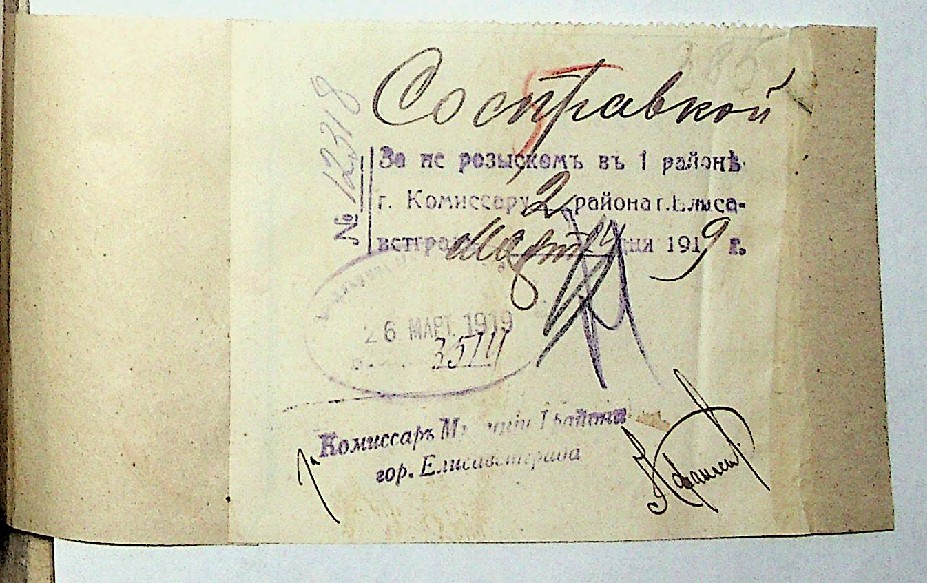 385
Со справкой
№ 12318
За не розыскомъ въ 1 районѣ
г. Комиссару 2 района г. Елиса-
ветград Март дня 1919 г.
26 МАРТ 1919
3514
Комиссаръ Милиціи 1 района
гор. Елисаветграда